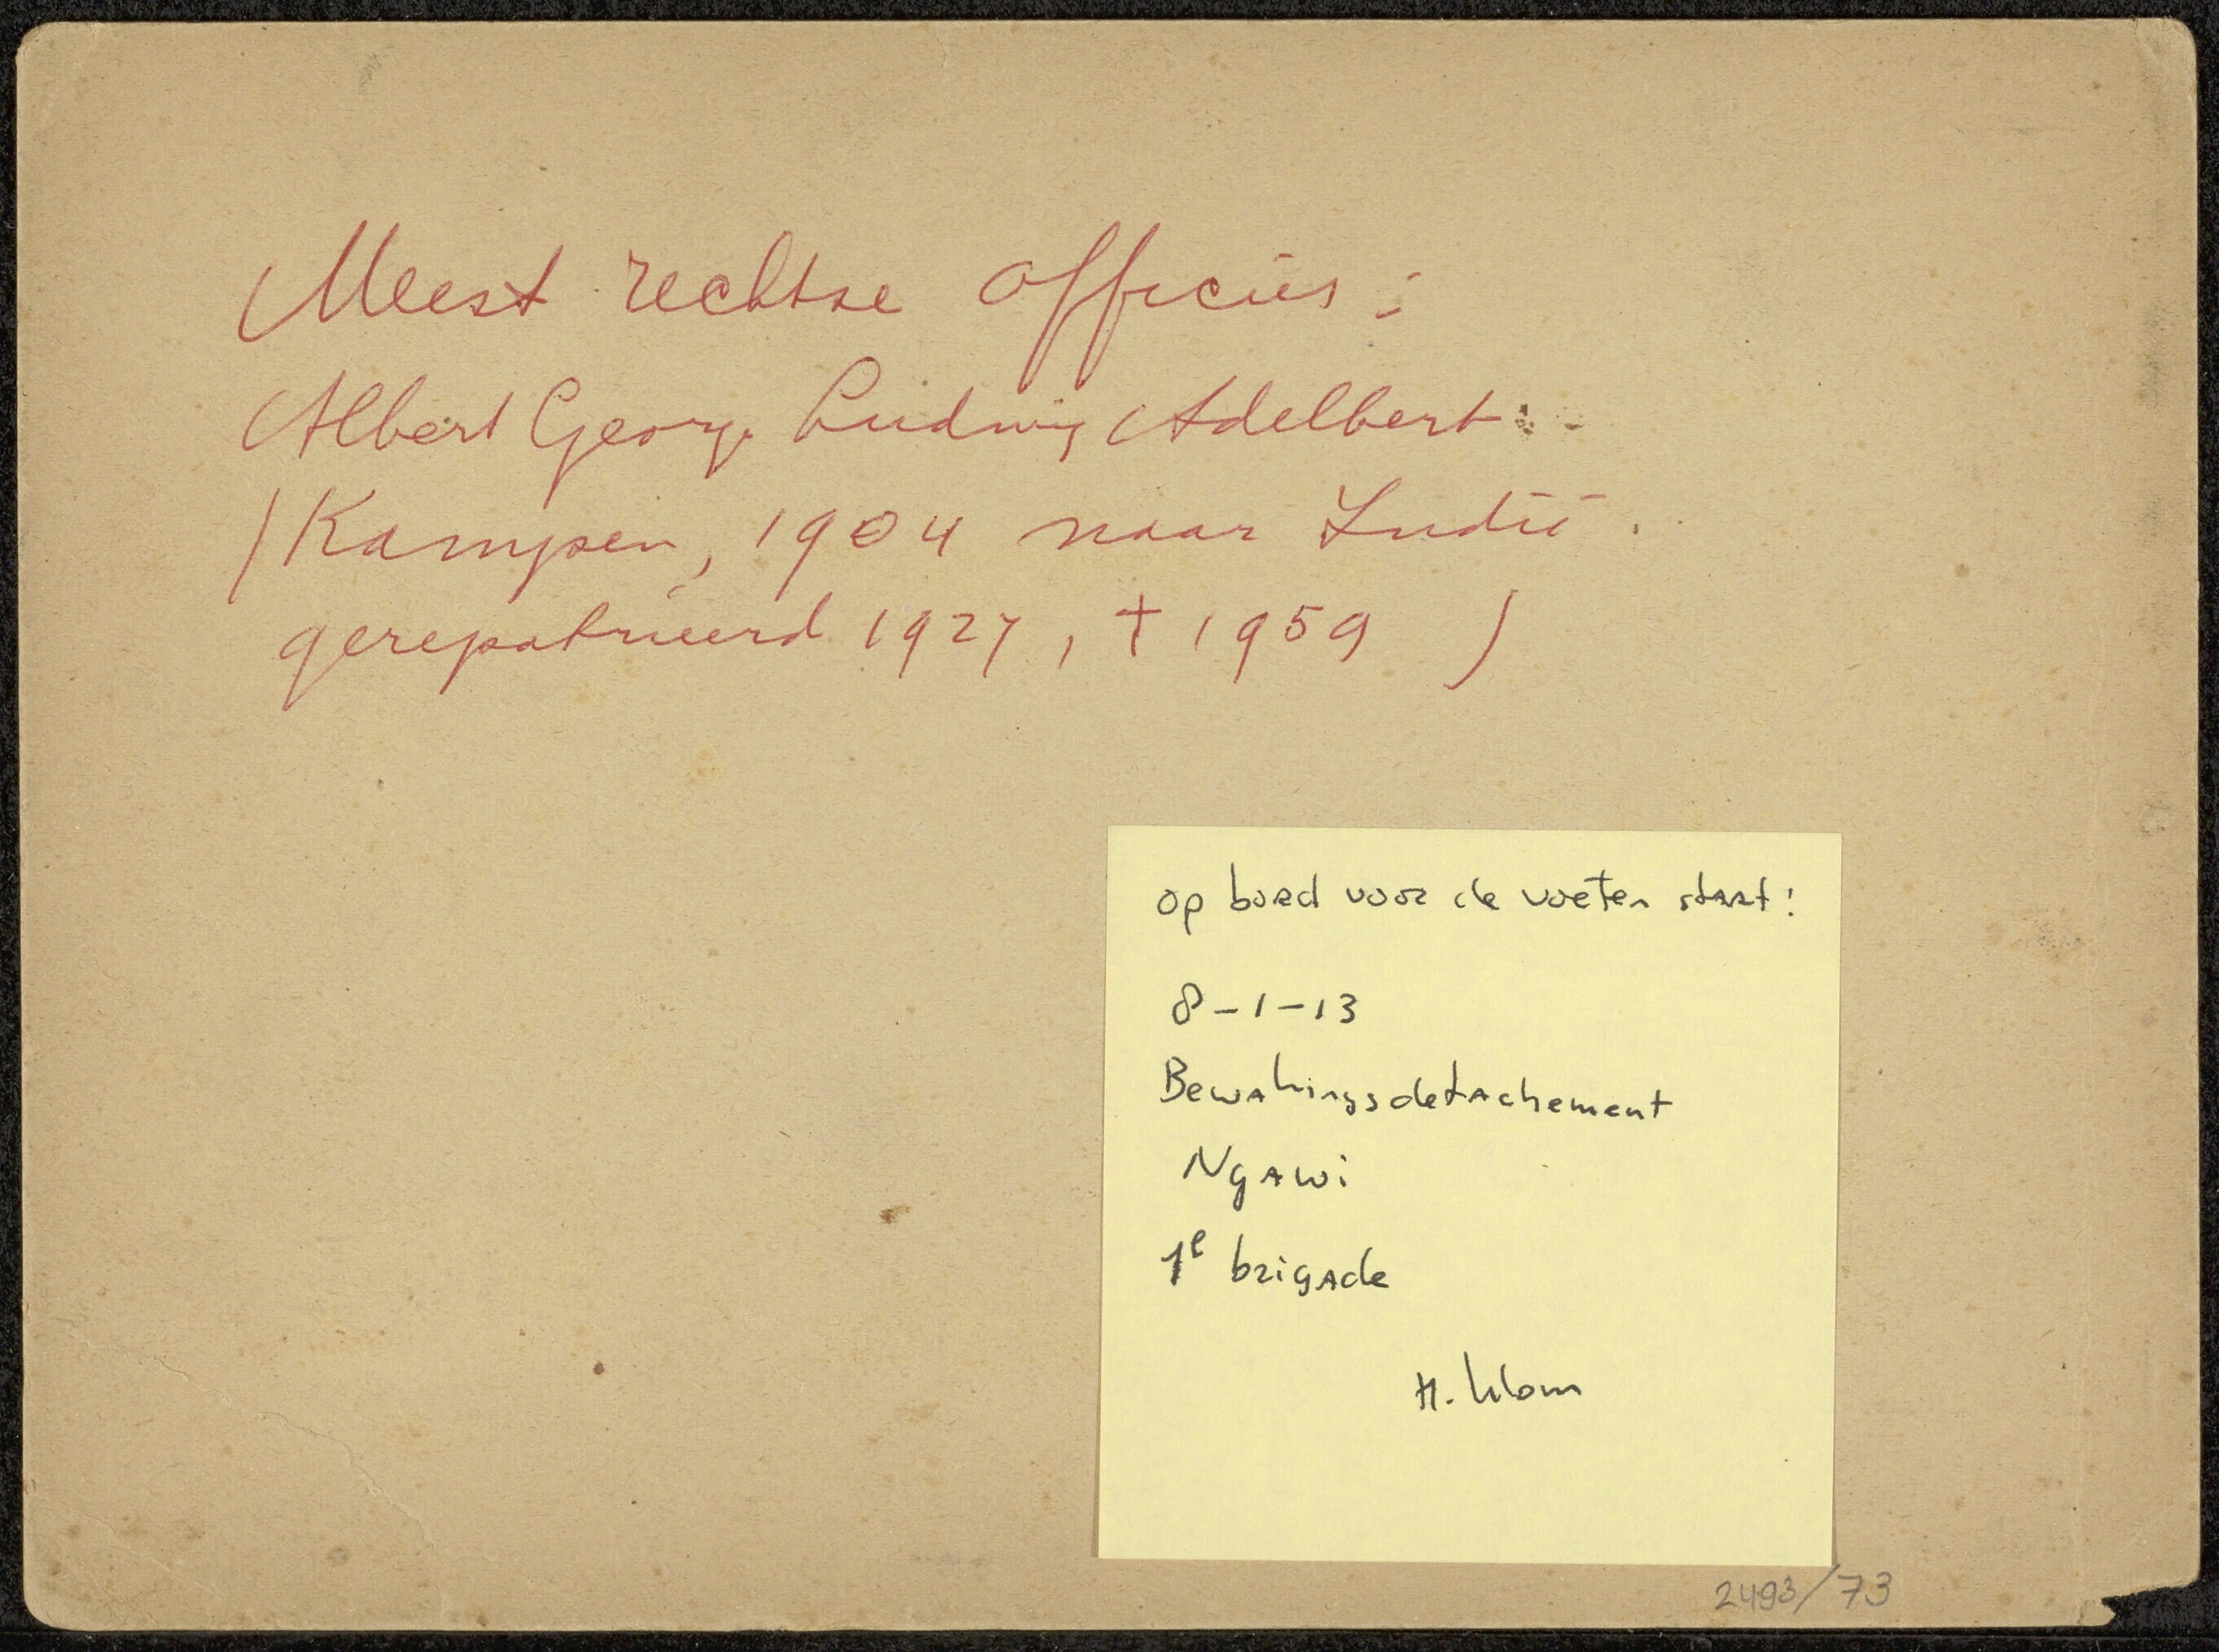 Meest rechtse officier:
Albert George Ludwig Adelbert
(Kampen, 1904 naar Indië.
gerepatrieerd 1927, † 1959 )
op bord voor de voeten staat:
8-1-13
Bewakingsdetachement
Ngawi
1e brigade
H. Klom
2493/73